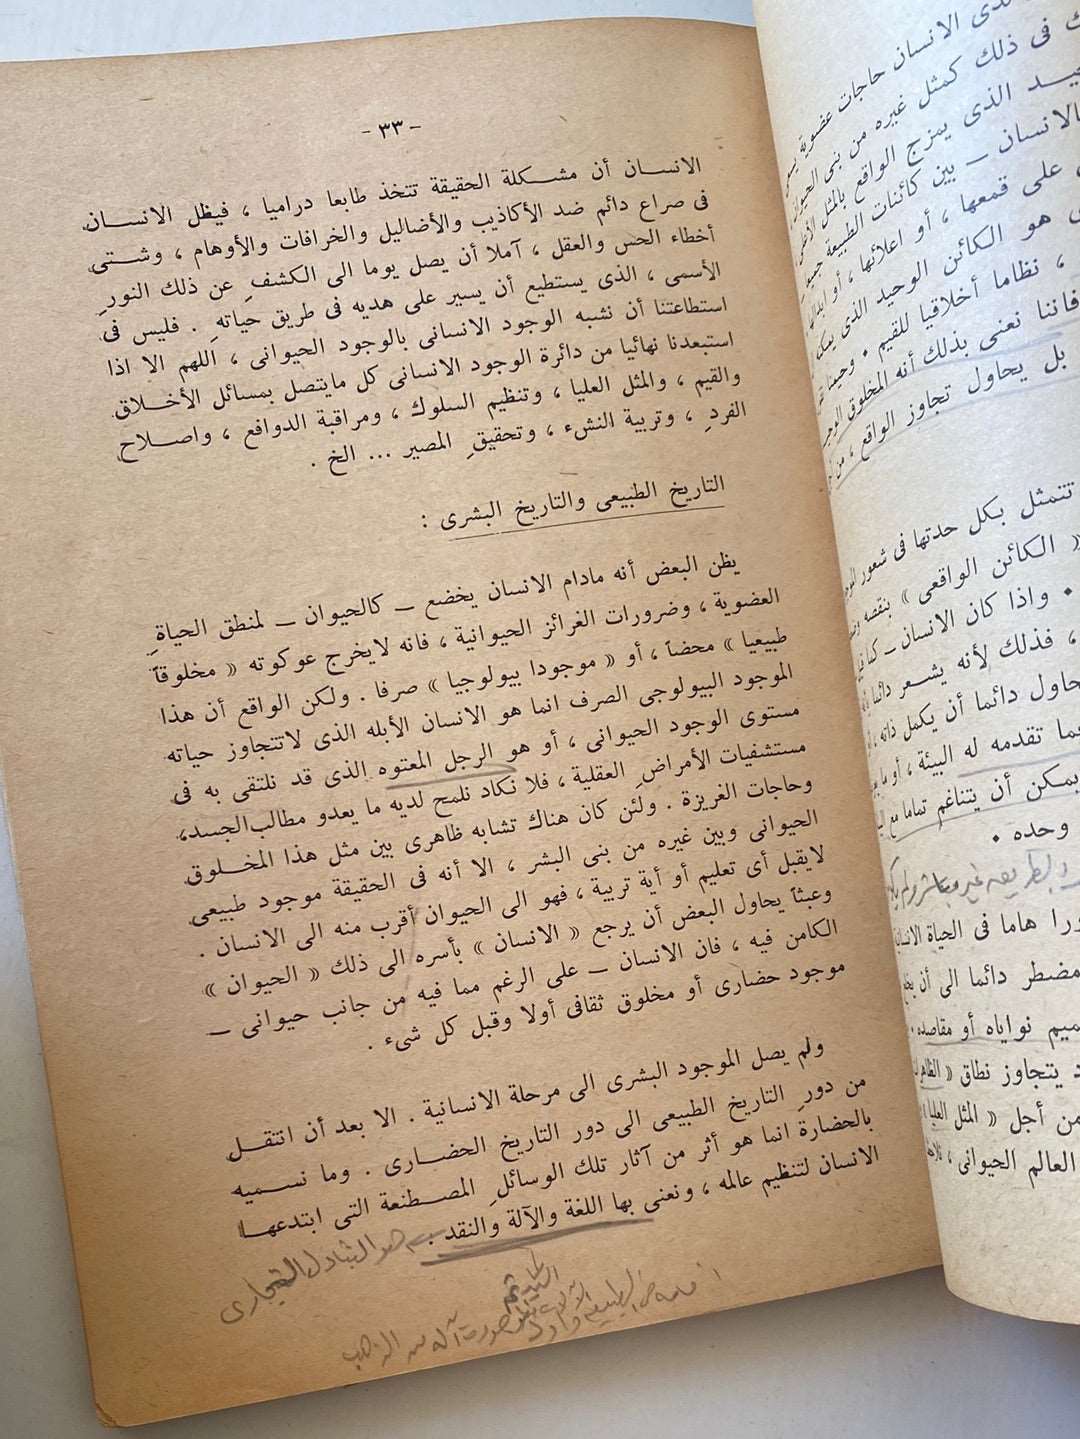 - ٣٣ -
الانسان أن مشكلة الحقيقة تتخذ طابعا دراميا ، فيظل الانسان
فى صراع دائم ضد الأكاذيب والأضاليل والخرافات والأوهام ، وشتى
أخطاء الحس والعقل ، آملا أن يصل يوما الى الكشف عن ذلك النور
الأسمى ، الذى يستطيع أن يسير على هديه فى طريق حياته . فليس فى
استطاعتنا أن نشبه الوجود الانسانى بالوجود الحيوانى ، اللهم الا اذا
استبعدنا نهائيا من دائرة الوجود الانسانى كل مايتصل بمسائل الأخلاق
والقيم ، والمثل العليا ، وتنظيم السلوك ، ومراقبة الدوافع ، واصلاح
الفرد ، وتربية النشء ، وتحقيق المصير ... الخ .
التاريخ الطبيعى والتاريخ البشرى :
يظن البعض أنه مادام الانسان يخضع — كالحيوان — لمنطق الحياة
العضوية ، وضرورات الغرائز الحيوانية ، فانه لايخرج عوكوته « مخلوقاً
طبيعيا » محضاً ، أو « موجودا بيولوجيا » صرفا . ولكن الواقع أن هذا
الموجود البيولوجى الصرف انما هو الانسان الأبله الذى لاتتجاوز حياته
مستوى الوجود الحيوانى ، أو هو الرجل المعتوه الذى قد نلتقى به فى
مستشفيات الأمراض العقلية ، فلا نكاد نلمح لديه ما يعدو مطالب الجسد ،
وحاجات الغريزة . ولئن كان هناك تشابه ظاهرى بين مثل هذا المخلوق
الحيوانى وبين غيره من بنى البشر ، الا أنه فى الحقيقة موجود طبيعى
لايقبل أى تعليم أو أية تربية ، فهو الى الحيوان أقرب منه الى الانسان .
وعبثاً يحاول البعض أن يرجع « الانسان » بأسره الى ذلك « الحيوان »
الكامن فيه ، فان الانسان — على الرغم مما فيه من جانب حيوانى —
موجود حضارى أو مخلوق ثقافى أولا وقبل كل شىء .
ولم يصل الموجود البشرى الى مرحلة الانسانية . الا بعد أن انتقل
من دور التاريخ الطبيعى الى دور التاريخ الحضارى . وما نسميه
بالحضارة انما هو أثر من آثار تلك الوسائل المصطنعة التى ابتدعها
الانسان لتنظيم عالمه ، ونعنى بها اللغة والآلة والنقد .
هو التبادل التجارى
لدى الانسان حاجات عضوية
فى ذلك كمثل غيره من بنى الحيوان
الذى يمزج الواقع بالمثل
الانسان — بين كائنات الطبيعة
على قمعها ، أو اعلائها ، أو
هو الكائن الوحيد الذى
، نظاما أخلاقيا للقيم .
فاننا نعنى بذلك أنه المخلوق
بل يحاول تجاوز الواقع ، من
تتمثل بكل حدتها فى شعور
« الكائن الواقعى » بنقصه
. واذا كان الانسان —
، فذلك لأنه يشعر دائما
يحاول دائما أن يكمل ذاته ،
بما تقدمه له البيئة ، أو
يمكن أن يتناغم تماما مع
وحده .
هاما فى الحياة
مضطر دائما الى أن
نواياه أو مقاصده .
يتجاوز نطاق «
من أجل « المثل العليا »
العالم الحيوانى ،